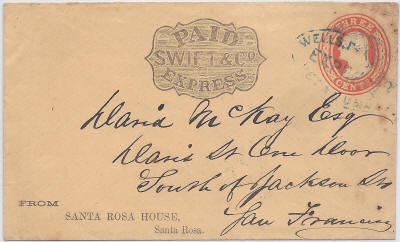 PAID
SWIFT & Co
EXPRESS
THREE
CENTS
WELLS, F
EX
David McKay Esq
Davis St One Door
South of Jackson St
San Francisco
FROM
SANTA ROSA HOUSE,
Santa Rosa.